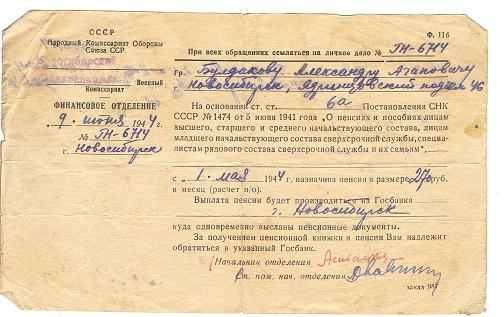 СССР
Народный Комиссариат Обороны
Союза ССР
Военный
Комиссариат
ФИНАНСОВОЕ ОТДЕЛЕНИЕ
9 июня 1944 г.
№ ГП-6714
г. Новосибирск
Ф. 116
При всех обращениях ссылаться на личное дело № ГП-6714
Гр. Булдакову Александру Агаповичу
г. Новосибирск, 46
На основании ст. ст. 6а Постановления СНК
СССР №1474 от 5 июня 1941 „О пенсиях и пособиях лицам
высшего, старшего и среднего начальствующего состава, лицам
младшего начальствующего состава сверхсрочной службы, специали-
стам рядового состава сверхсрочной службы и их семьям",
с „1" мая 1944 г. назначена пенсия в размере 270 руб.
в месяц (расчет п/о).
Выплата пенсии будет производиться из Госбанка
г. Новосибирск
куда одновременно высланы пенсионные документы.
За получением пенсионной книжки и пенсии Вам надлежит
обратиться в указанный Госбанк.
Начальник отделения
Ст. пом. нач. отделения